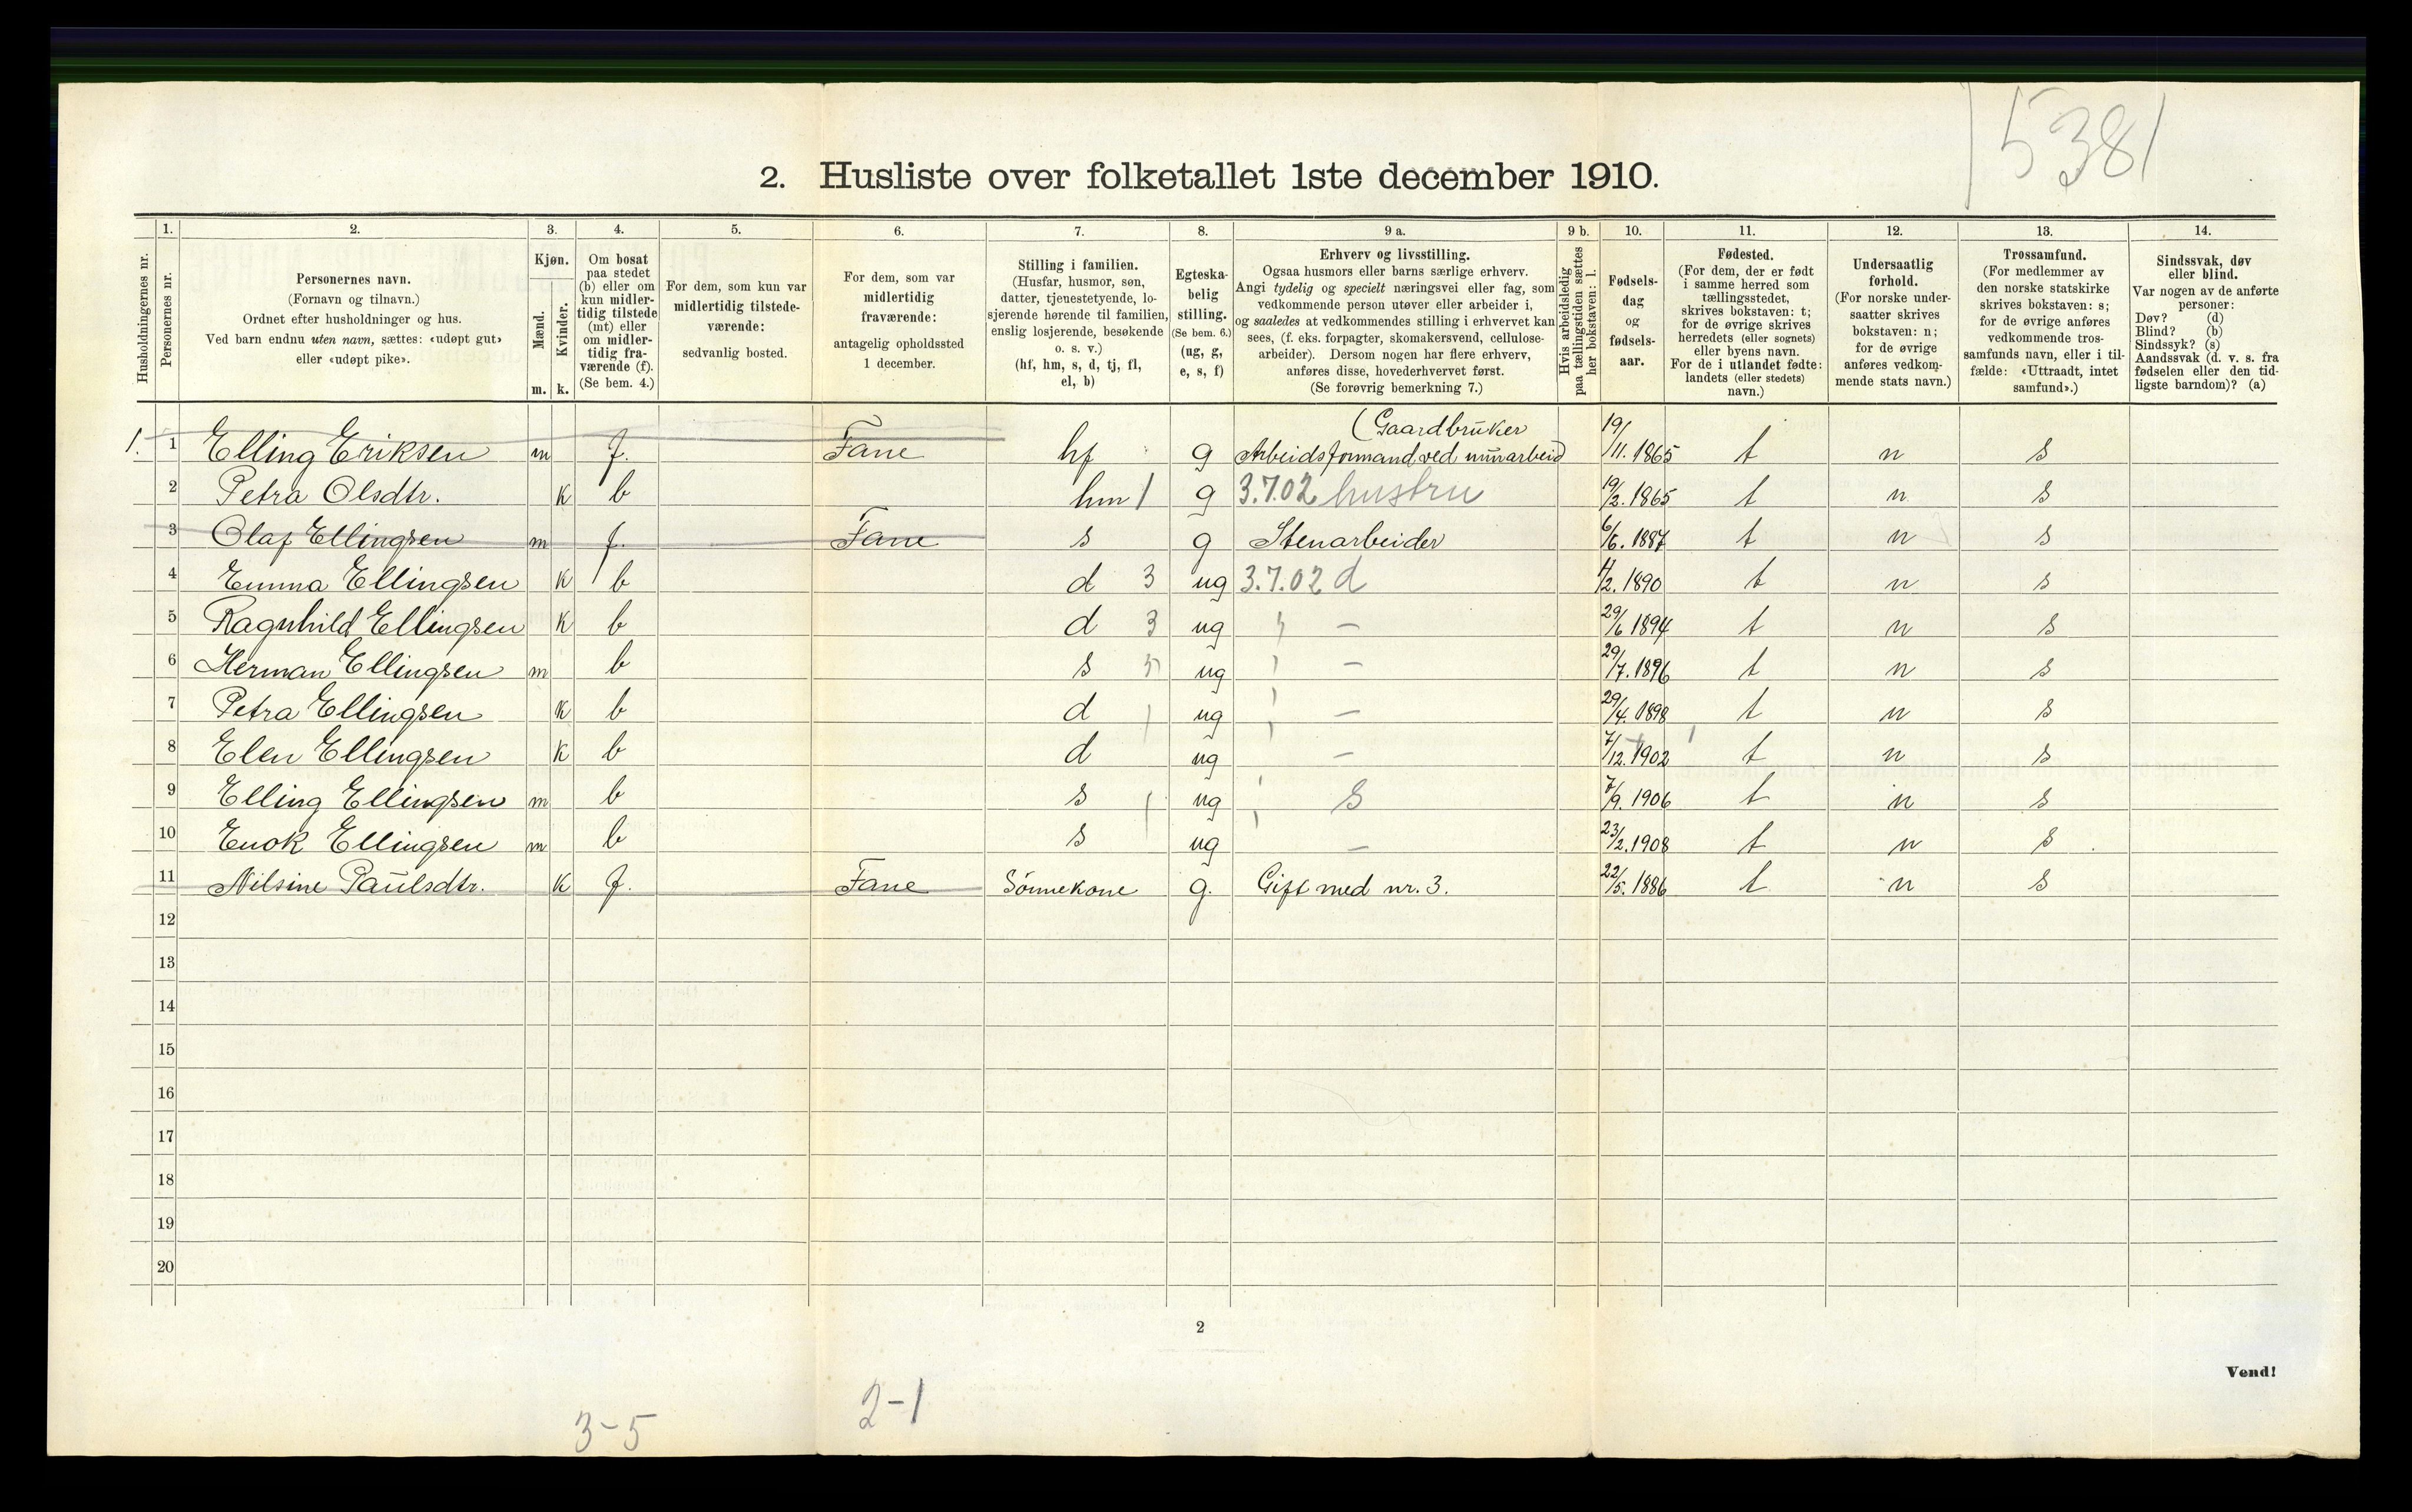 5381
2. Husliste over folketallet 1ste december 1910.
Husholdningernes nr.
1. Personernes nr.
2. Personernes navn. (Fornavn og tilnavn.) Ordnet efter husholdninger og hus. Ved barn endnu uten navn, sættes: «udøpt gut» eller «udøpt pike».
3. Kjøn. Mænd. m. Kvinder. k.
4. Om bosat paa stedet (b) eller om kun midlertidig tilstede (mt) eller om midlertidig fraværende (f). (Se bem. 4.)
5. For dem, som kun var midlertidig tilstedeværende: sedvanlig bosted.
6. For dem, som var midlertidig fraværende: antagelig opholdssted 1 december.
7. Stilling i familien. (Husfar, husmor, søn, datter, tjenestetyende, losjerende hørende til familien, enslig losjerende, besøkende o. s. v.) (hf, hm, s, d, tj, fl, el, b)
8. Egteskabelig stilling. (Se bem. 6.) (ug, g, e, s, f)
9 a. Erhverv og livsstilling. Ogsaa husmors eller barns særlige erhverv. Angi tydelig og specielt næringsvei eller fag, som vedkommende person utøver eller arbeider i, og saaledes at vedkommendes stilling i erhvervet kan sees, (f. eks. forpagter, skomakersvend, cellulosearbeider). Dersom nogen har flere erhverv, anføres disse, hovederhvervet først. (Se forøvrig bemerkning 7.)
9 b. Hvis arbeidsledig paa tællingstiden sættes her bokstaven: l.
10. Fødselsdag og fødselsaar.
11. Fødested. (For dem, der er født i samme herred som tællingsstedet, skrives bokstaven: t; for de øvrige skrives herredets (eller sognets) eller byens navn. For de i utlandet fødte: landets (eller stedets) navn.)
12. Undersaatlig forhold. (For norske undersaatter skrives bokstaven: n; for de øvrige anføres vedkommende stats navn.)
13. Trossamfund. (For medlemmer av den norske statskirke skrives bokstaven: s; for de øvrige anføres vedkommende trossamfunds navn, eller i tilfælde: «Uttraadt, intet samfund».)
14. Sindssvak, døv eller blind. Var nogen av de anførte personer: Døv? (d) Blind? (b) Sindssyk? (s) Aandssvak (d. v. s. fra fødselen eller den tidligste barndom)? (a)
(Gaardbruker
1. 1 Elling Eriksen m f. Fane hf g Arbeidsformand ved minarbeid 19/11. 1865 t n s
2 Petra Olsdtr. K b hm 1 g 3.7.02 hustru 19/2. 1865 t n s
3 Olaf Ellingsen m f. Fane s g Stenarbeider 6/6. 1887 t n s
4 Emma Ellingsen K b d 3 ug 3.7.02 d 4/2. 1890 t n s
5 Ragnhild Ellingsen K b d 3 ug — 29/6 1894 t n s
6 Herman Ellingsen m b s ug — 29/7. 1896 t n s
7 Petra Ellingsen K b d ug — 29/4. 1898 t n s
8 Elen Ellingsen K b d ug — 7/12. 1902 t n s
9 Elling Ellingsen m b s ug s 7/9. 1906 t n s
10 Enok Ellingsen m b s ug — 23/2. 1908 t n s
11 Nilsine Paulsdtr. K f. Fane Sönnekone g. Gift med nr. 3. 22/5. 1886 t n s
12
13
14
15
16
17
18
19
20
2
Vend!
2-1
3-5